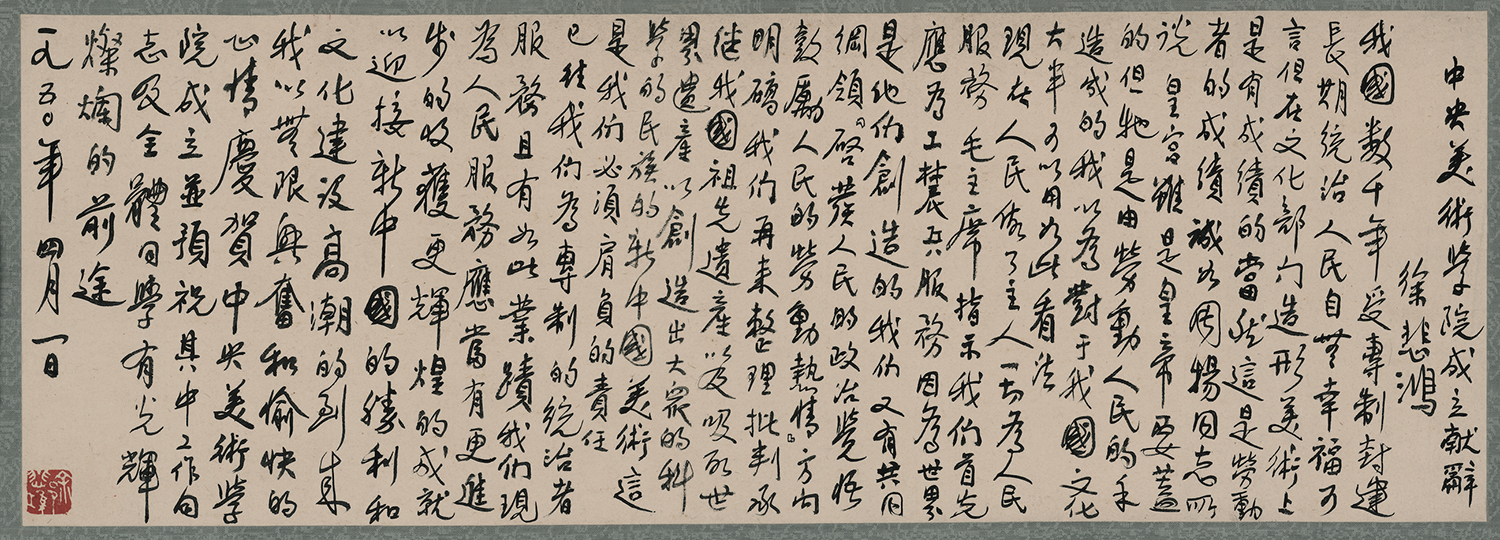 中央美術學院成立献辭
徐悲鴻
我國數千年受專制封建
長期統治人民自無幸福可
言但在文化部門造形美術上
是有成績的當然這是勞動
者的成績誠如周揚同志所
说皇宮雖是皇帝要蓋
的但牠是由勞動人民的手
造成的我以為對于我國文化
大半可以用如此看法
現在人民做了主人一切為人民
服務毛主席指示我們首先
應為工農兵服務因為世界
是他們創造的我们又有共同
綱領啓發人民的政治覺悟
鼓勵人民的勞動熱情方向
明確我们再来整理批判承
继我國祖先遺產以及吸取世
界遺產以創造出大眾的科
學的民族的新中國美術這
是我們必須肩負的責任
已往我们為專制的統治者
服務且有如此業蹟我们現
為人民服務應當有更進
步的收獲更輝煌的成就
以迎接新中國的勝利和
文化建设高潮的到来
我以無限興奮和愉快的
心情慶賀中央美術學
院成立並預祝其中工作同
志及全體同學有光輝
燦爛的前途
一九五〇年四月一日